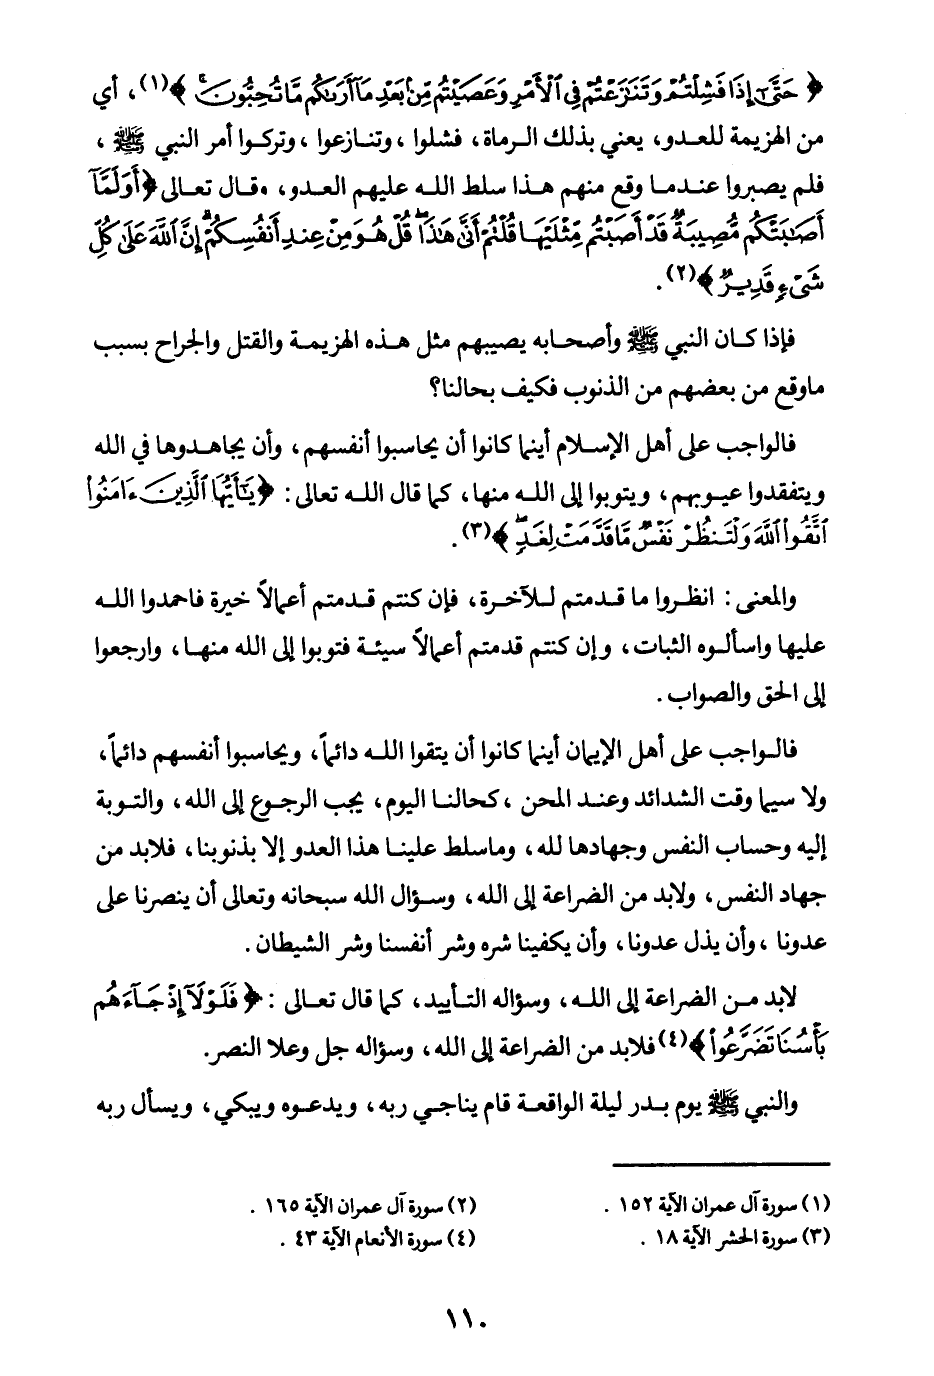 ﴿ حَتَّىٰٓ إِذَا فَشِلْتُمْ وَتَنَٰزَعْتُمْ فِى ٱلْأَمْرِ وَعَصَيْتُم مِّنۢ بَعْدِ مَآ أَرَىٰكُم مَّا تُحِبُّونَ ۚ ﴾(١)، أي
من الهزيمة للعدو، يعني بذلك الرماة، فشلوا ،وتنازعوا ،وتركوا أمر النبي ﷺ ،
فلم يصبروا عندما وقع منهم هذا سلط الله عليهم العدو، وقال تعالى ﴿أَوَلَمَّآ
أَصَٰبَتْكُم مُّصِيبَةٌ قَدْ أَصَبْتُم مِّثْلَيْهَا قُلْتُمْ أَنَّىٰ هَٰذَا ۖ قُلْ هُوَ مِنْ عِندِ أَنفُسِكُمْ ۗ إِنَّ ٱللَّهَ عَلَىٰ كُلِّ
شَىْءٍ قَدِيرٌ ﴾(٢).
فإذا كان النبي ﷺ وأصحابه يصيبهم مثل هذه الهزيمة والقتل والجراح بسبب
ماوقع من بعضهم من الذنوب فكيف بحالنا؟
فالواجب على أهل الإسلام أينما كانوا أن يحاسبوا أنفسهم، وأن يجاهدوها في الله
ويتفقدوا عيوبهم، ويتوبوا إلى الله منها، كما قال الله تعالى: ﴿يَٰٓأَيُّهَا ٱلَّذِينَ ءَامَنُوا۟
ٱتَّقُوا۟ ٱللَّهَ وَلْتَنظُرْ نَفْسٌ مَّا قَدَّمَتْ لِغَدٍ ۖ ﴾(٣).
والمعنى: انظروا ما قدمتم للآخرة، فإن كنتم قدمتم أعمالاً خيرة فاحمدوا الله
عليها واسألوه الثبات، وإن كنتم قدمتم أعمالاً سيئة فتوبوا إلى الله منها، وارجعوا
إلى الحق والصواب.
فالواجب على أهل الإيمان أينما كانوا أن يتقوا الله دائماً، ويحاسبوا أنفسهم دائماً،
ولا سيما وقت الشدائد وعند المحن ،كحالنا اليوم، يجب الرجوع إلى الله، والتوبة
إليه وحساب النفس وجهادها لله، وماسلط علينا هذا العدو إلا بذنوبنا، فلابد من
جهاد النفس، ولابد من الضراعة إلى الله، وسؤال الله سبحانه وتعالى أن ينصرنا على
عدونا ،وأن يذل عدونا، وأن يكفينا شره وشر أنفسنا وشر الشيطان.
لابد من الضراعة إلى الله، وسؤاله التأييد، كما قال تعالى :﴿ فَلَوْلَآ إِذْ جَآءَهُم
بَأْسُنَا تَضَرَّعُوا۟ ﴾(٤)فلابد من الضراعة إلى الله، وسؤاله جل وعلا النصر.
والنبي ﷺ يوم بدر ليلة الواقعة قام يناجي ربه، ويدعوه ويبكي، ويسأل ربه
(١) سورة آل عمران الآية ١٥٢ .
(٢) سورة آل عمران الآية ١٦٥ .
(٣) سورة الحشر الآية ١٨ .
(٤) سورة الأنعام الآية ٤٣ .
١١٠